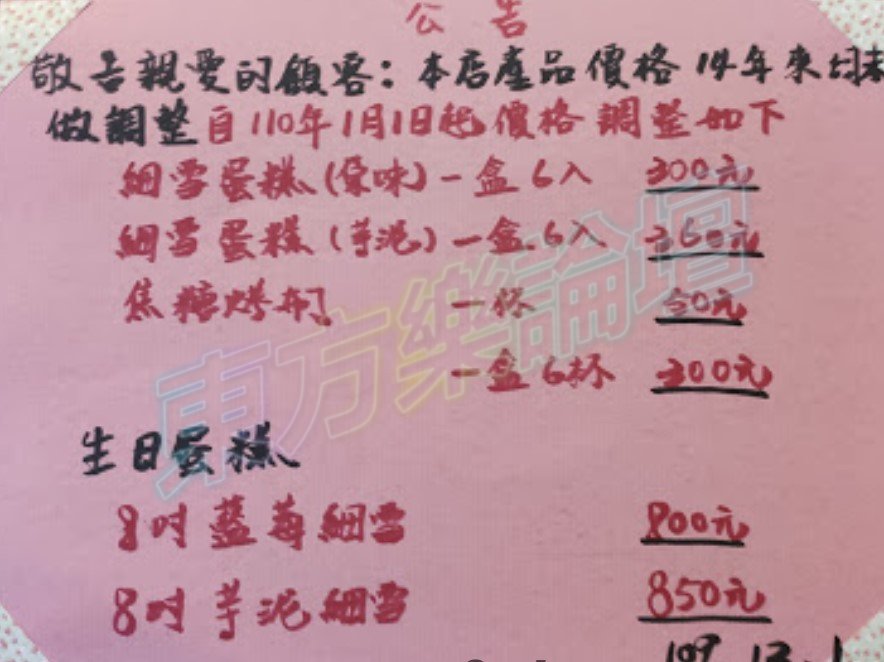 公告
敬告親愛的顧客：本店產品價格14年來均未
做調整自110年1月1日起價格調整如下
細雪蛋糕(原味)一盒6入 300元
細雪蛋糕(芋泥)一盒6入 360元
焦糖烤布 一杯 50元
一盒6杯 300元
生日蛋糕
8吋藍莓細雪 800元
8吋芋泥細雪 850元
109.12.1
東方樂論壇